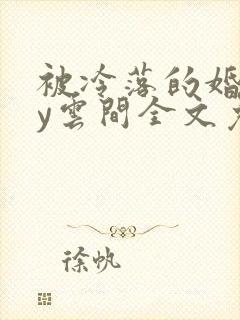 被冷落的婚
y雲間全文
徐帆